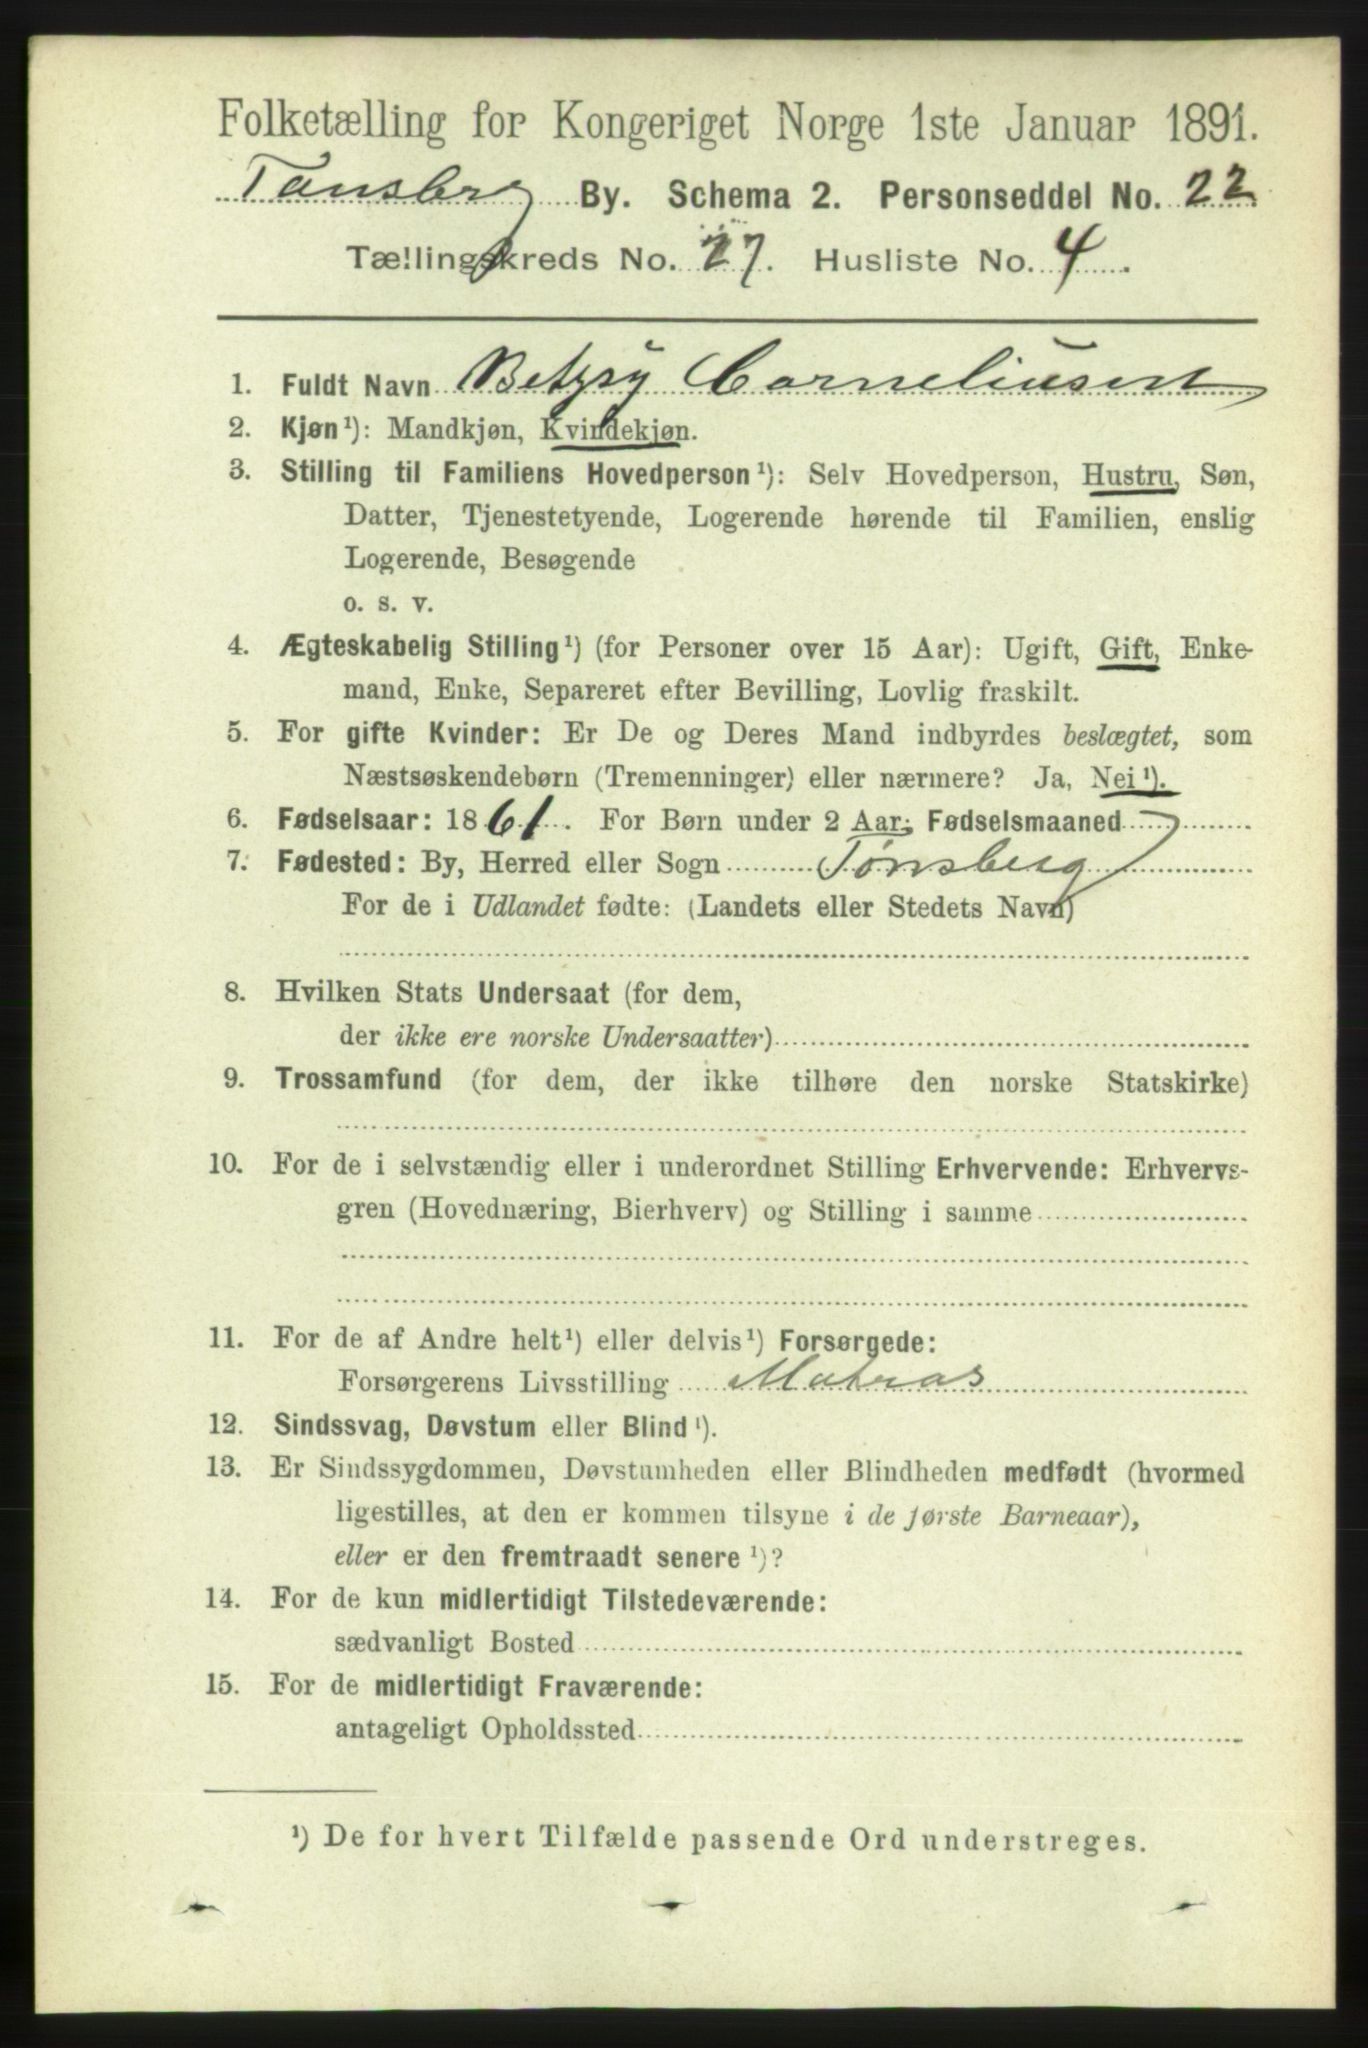 Folketælling for Kongeriget Norge 1ste Januar 1891.
Tønsberg By. Schema 2. Personseddel No. 22
Tællingskreds No. 27. Husliste No. 4.
1. Fuldt Navn Betzsy Corneliusen
2. Kjøn¹): Mandkjøn, Kvindekjøn.
3. Stilling til Familiens Hovedperson¹): Selv Hovedperson, Hustru, Søn,
Datter, Tjenestetyende, Logerende hørende til Familien, enslig
Logerende, Besøgende
o. s. v.
4. Ægteskabelig Stilling¹) (for Personer over 15 Aar): Ugift, Gift, Enke-
mand, Enke, Separeret efter Bevilling, Lovlig fraskilt.
5. For gifte Kvinder: Er De og Deres Mand indbyrdes beslægtet, som
Næstsøskendebørn (Tremenninger) eller nærmere? Ja, Nei¹).
6. Fødselsaar: 1861. For Børn under 2 Aar: Fødselsmaaned
7. Fødested: By, Herred eller Sogn Tønsberg
For de i Udlandet fødte: (Landets eller Stedets Navn)
8. Hvilken Stats Undersaat (for dem,
der ikke ere norske Undersaatter)
9. Trossamfund (for dem, der ikke tilhøre den norske Statskirke)
10. For de i selvstændig eller i underordnet Stilling Erhvervende: Erhvervs-
gren (Hovednæring, Bierhverv) og Stilling i samme
11. For de af Andre helt¹) eller delvis¹) Forsørgede:
Forsørgerens Livsstilling Matros
12. Sindssvag, Døvstum eller Blind¹).
13. Er Sindssygdommen, Døvstumheden eller Blindheden medfødt (hvormed
ligestilles, at den er kommen tilsyne i de første Barneaar),
eller er den fremtraadt senere¹)?
14. For de kun midlertidigt Tilstedeværende:
sædvanligt Bosted
15. For de midlertidigt Fraværende:
antageligt Opholdssted
¹) De for hvert Tilfælde passende Ord understreges.